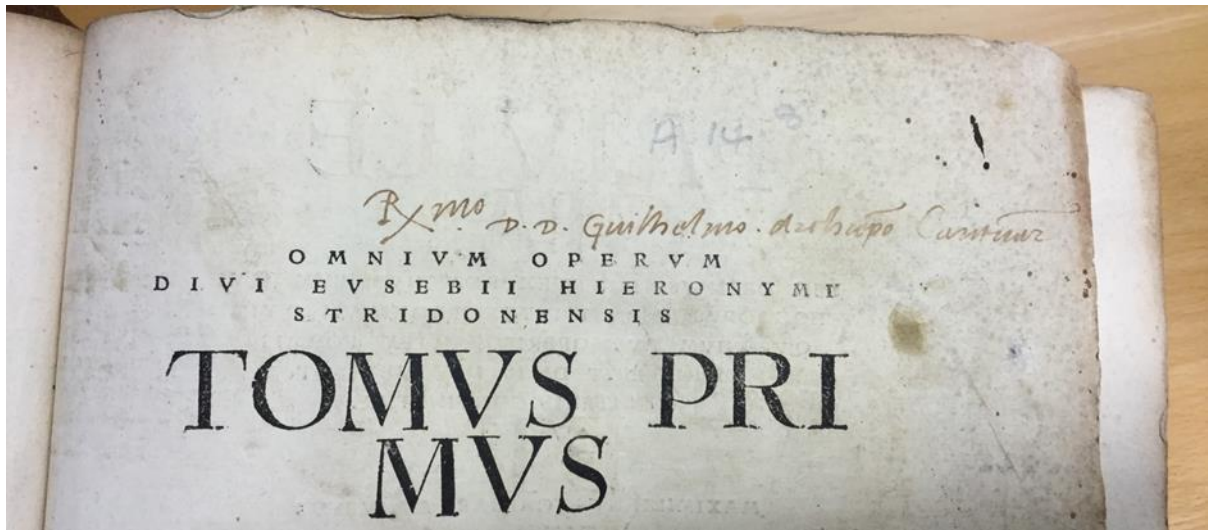 A 14 8
Rmo D. D. Guilhelmo. archiepo Cantuar
OMNIVM OPERVM
DIVI EVSEBII HIERONYMI
STRIDONENSIS
TOMVS PRI
MVS